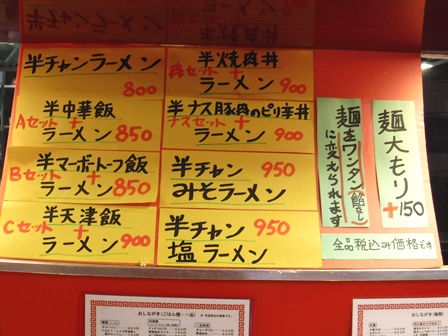 半チャンラーメン
800
半中華飯
Aセット +
ラーメン 850
半マーボトーフ飯
Bセット +
ラーメン 850
半天津飯
Cセット +
ラーメン 900
半焼肉丼
丼セット +
ラーメン 900
半ナス豚肉のピリ辛丼
ナスセット +
ラーメン 900
半チャン 950
みそラーメン
半チャン 950
塩ラーメン
麺をワンタン(餡なし)
に変えられます
麺大もり
+150
全品税込み価格です
おしながき(ごはん類・一品)
おしながき(麺類)